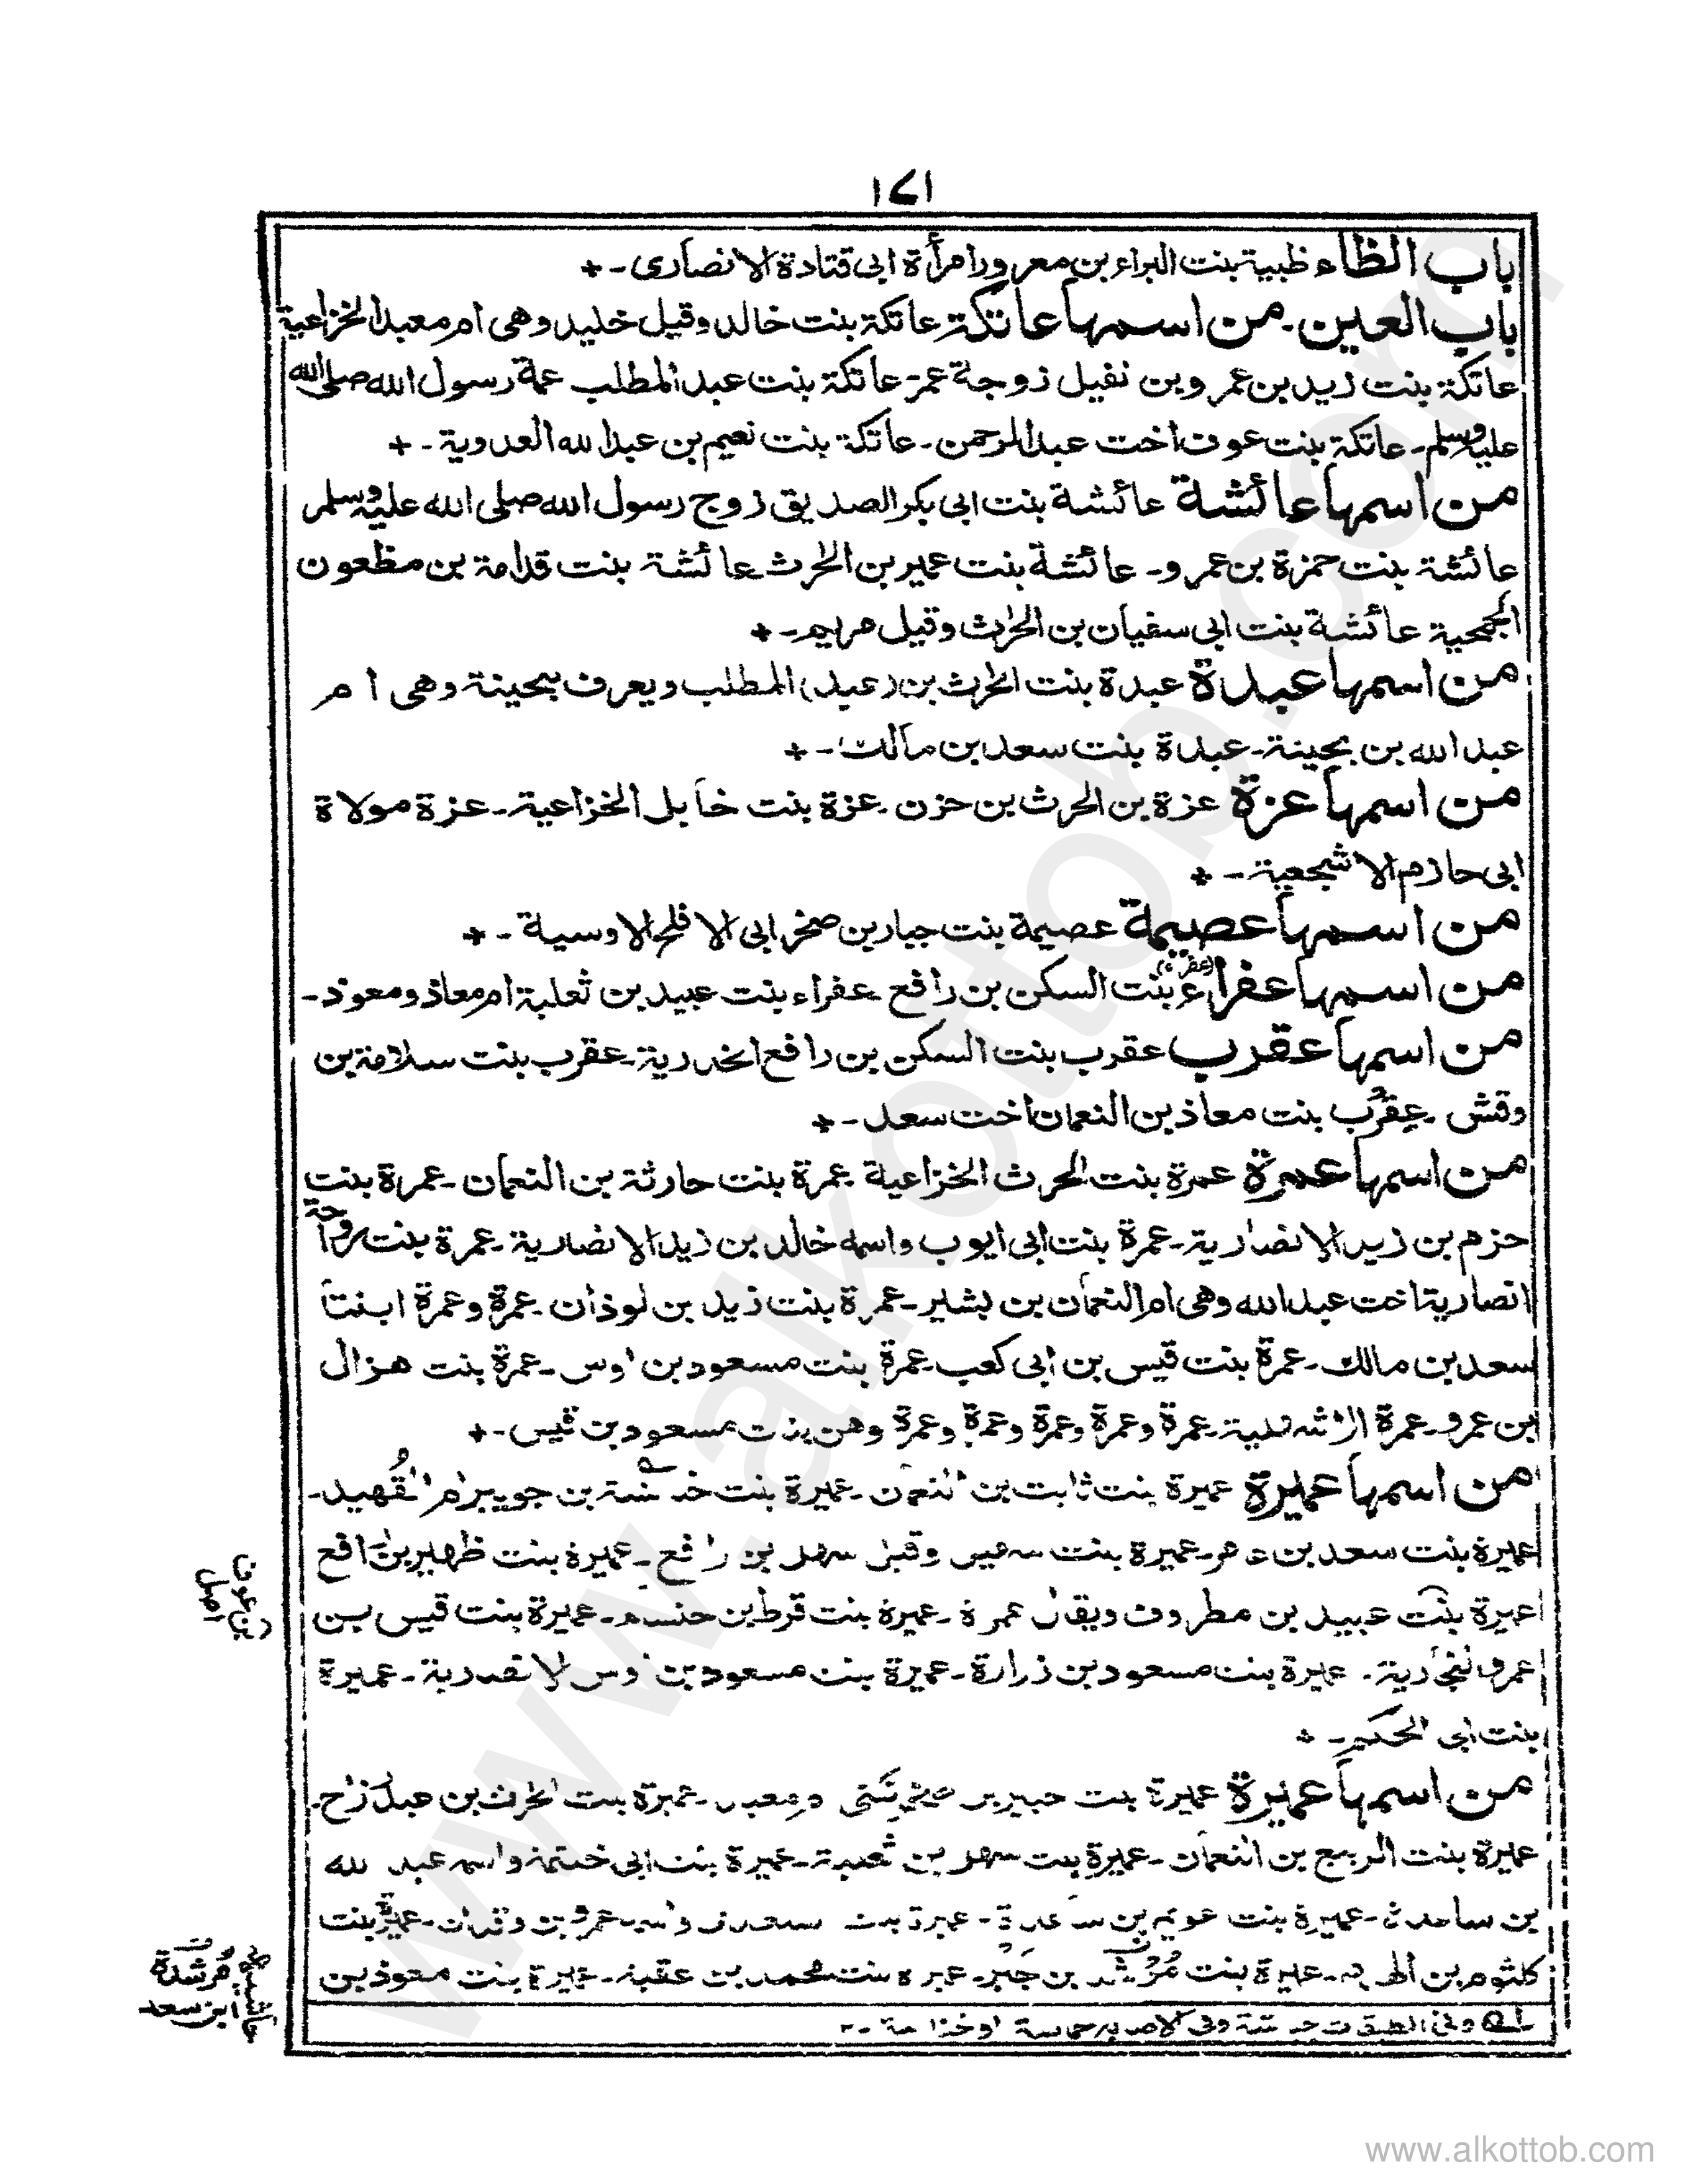 ١٧١
باب الظاء ظبية بنت البراء بن معرور امرأة ابى قتادة الانصارى -+
باب العين - من اسمها عاتكة عاتكة بنت خالد وقيل خليد وهى ام معبد الخزاعية
عاتكة بنت زيد بن عمر وبن نفيل زوجة عمر - عاتكة بنت عبد المطلب عمة رسول الله صلى الله
عليه وسلم - عاتكة بنت عوف اخت عبد الرحمن - عاتكة بنت نعيم بن عبد الله العدوية -+
من اسمها عائشة عائشة بنت ابى بكر الصديق زوج رسول الله صلى الله عليه وسلم
عائشة بنت حمزة بن عمرو - عائشة بنت عمير بن الحرث عائشة بنت قدامة بن مظعون
الجمحية عائشة بنت ابى سفيان بن الحرث وقيل مريم -+
من اسمها عبدة عبدة بنت الحرث بن (عبد) المطلب ويعرف ببحينة وهى ام
عبد الله بن بحينة - عبدة بنت سعد بن مالك -+
من اسمها عزة عزة بن الحرث بن حزن - عزة بنت خابل الخزاعية - عزة مولاة
ابى حازم الاشجعية -+
من اسمها عصيمة عصيمة بنت جبار بن صخر ابى الافلح الاوسية -+
من اسمها عفراء (عفراء) بنت السكن بن رافع عفراء بنت عبيد بن ثعلبة ام معاذ ومعوذ -
من اسمها عقرب عقرب بنت السكن بن رافع الخدرية - عقرب بنت سلامة بن
وقش - عقرب بنت معاذ بن النعمان اخت سعد -+
من اسمها عمرة عمرة بنت الحرث الخزاعية عمرة بنت حارثة بن النعمان - عمرة بنت
حزم بن زيد الانصارية - عمرة بنت ابى ايوب واسمه خالد بن زيد الانصارية - عمرة بنت رواحة
انصارية اخت عبد الله وهى ام النعمان بن بشير - عمرة بنت زيد بن لوذان - عمرة وعمرة ابنتا
سعد بن مالك - عمرة بنت قيس بن ابى كعب - عمرة بنت مسعود بن اوس - عمرة بنت هزال
بن عمرو - عمرة عمرة وعمرة وعمرة وعمرة وعمرة وهن بنات مسعود بن قيس -+
من اسمها عميرة عميرة بنت ثابت بن النعمان - عميرة بنت بن جويبر ام القهيد -
عميرة بنت سعد بن عامر - عميرة بنت وقيل سهل بن رافع - عميرة بنت ظهير بن رافع
عميرة بنت عبيد بن مطروف ويقال عمرة - عميرة بنت قرط بن خنساء - عميرة بنت قيس بن
عمرو النجارية - عميرة بنت مسعود بن زرارة - عميرة بنت مسعود بن اوس الانصارية - عميرة
بنت ابى الحكم -+
من اسمها عميرة عميرة بنت ومعبد - عميرة بنت الحرث بن عبد رزاح -
عميرة بنت الربيع بن النعمان - عميرة بنت سهل بن ثعلبة - عميرة بنت ابى خثمة واسمه عبد الله
بن ساعدة - عميرة بنت عويم بن ساعدة - عميرة بنت سعد - عميرة بنت
كلثوم بن الهدم - عميرة بنت مرشد بن جبر - عميرة بنت محمد بن عقبة - عميرة بنت معوذ بن
وفى الطبقات
(بن عوف
اصل
مرشدة
ابن سعد
www.alkottob.com
www.alkottob.com